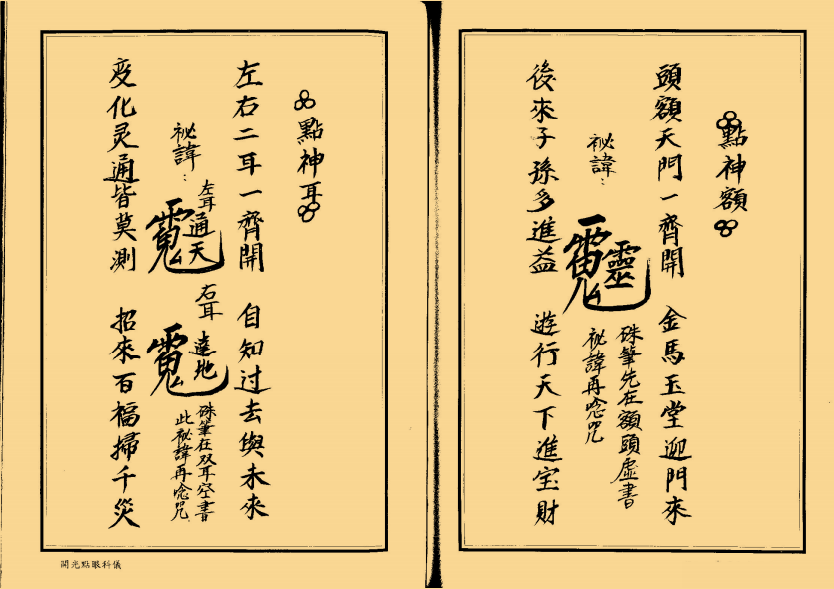 點神額
頭額天門一齊開　金馬玉堂迎門來
祕諱：
靈
硃筆先在額頭虛書
祕諱再唸咒
後來子孫多進益　遊行天下進宝財
點神耳
左右二耳一齊開　自知过去與未來
祕諱：
左耳
通天
右耳
達地
硃筆在双耳空書
此祕諱再唸咒
変化灵通皆莫測　招來百福掃千災
開光點眼科儀